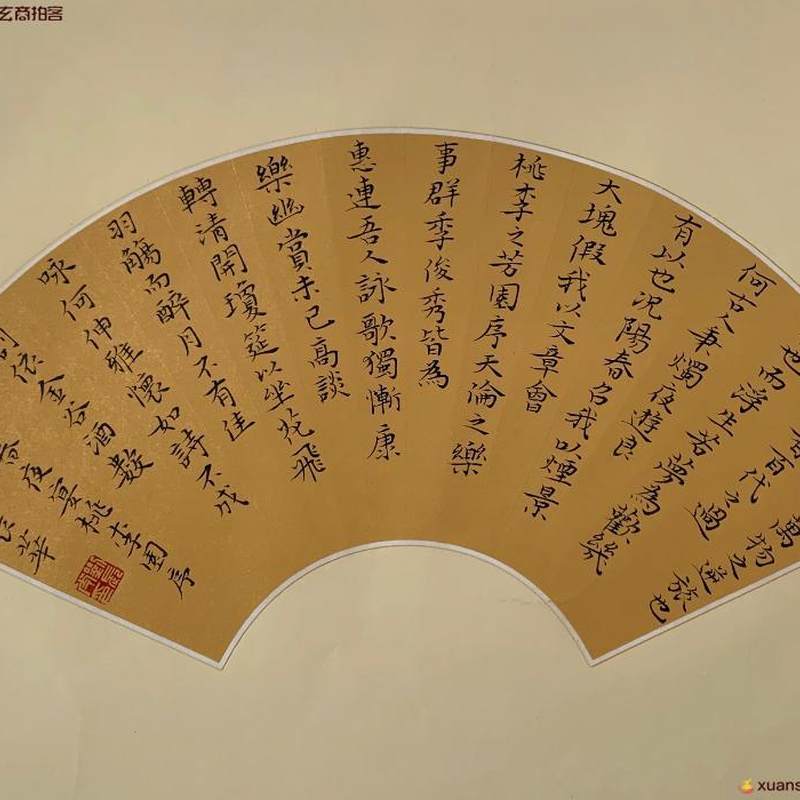 玄商拍客
萬物之逆旅也
者百代之過
也而浮生若夢為歡幾
何古人秉燭夜遊良
有以也況陽春召我以煙景
大塊假我以文章會
桃李之芳園序天淪之樂
事群季俊秀皆為
惠連吾人詠歌獨慚康
樂幽賞未已高談
轉清開瓊筵以坐花飛
羽觴而醉月不有佳
咏何伸雅懷如詩不成
依金谷酒數
夜宴桃李園序
華
xuans